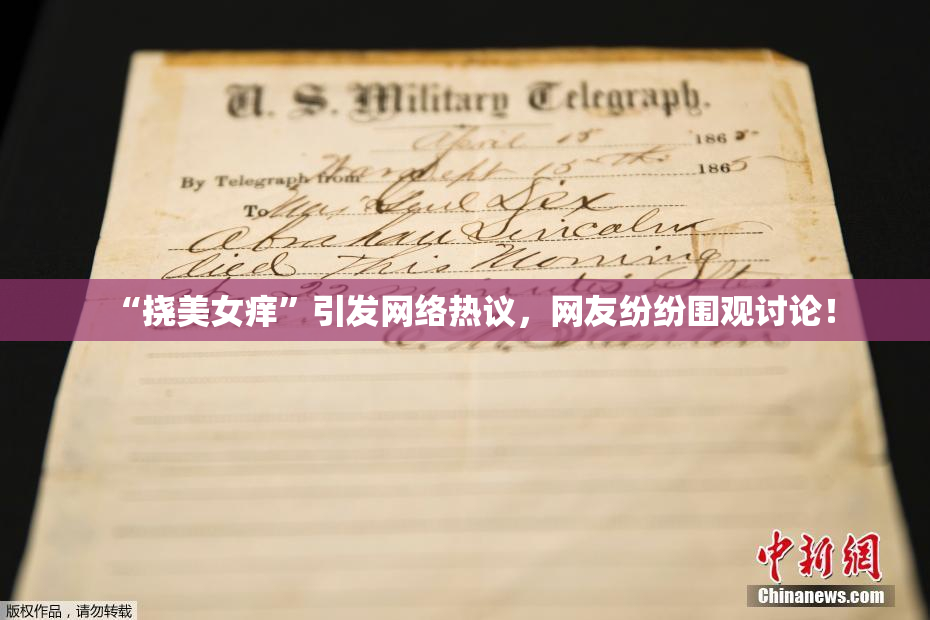 U. S. Military Telegraph.
April 15 1865
By Telegraph from War Dept 15th 1865
To Maj Genl Dix
Abraham Lincoln
died This Morning
at 22 minutes after
“挠美女痒”引发网络热议，网友纷纷围观讨论！
E. M. Stanton
中新网
Chinanews.com
版权作品，请勿转载